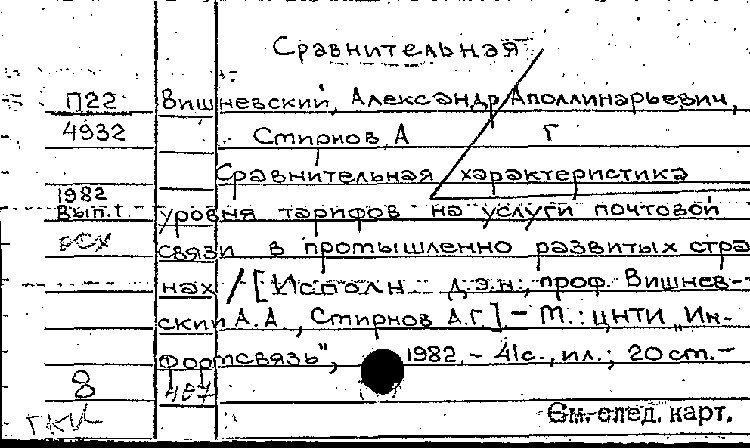 Сравнительная
П22 Вишневский, Александр Аполлинарьевич,
4932 Смирнов, А Г
Сравнительная характеристика
1982
Вып.1 уровня тарифов на услуги почтовой
всх связи в промышленно развитых стра
нах / [Исполн. д.э.н., проф. Вишнев-
ский А.А, Смирнов А.Г.] - М.: ЦНТИ „Ин-
формсвязь", 1982. - 41с., ил.; 20 см. -
8 487
См. след. карт.